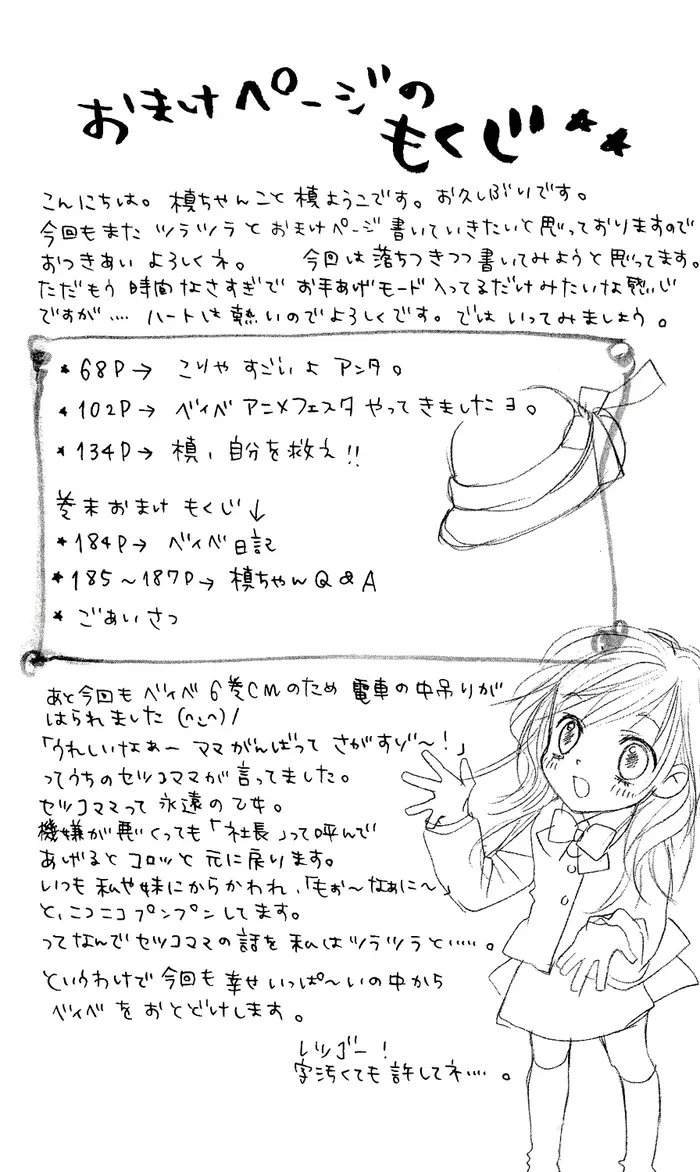 おまけページの
もくじ
こんにちは。槙ちゃんこと槙ようこです。お久しぶりです。
今回もまたツラツラとおまけページ書いていきたいと思っておりますので
おつきあいよろしくネ。 今回は落ちつきつつ書いてみようと思ってます。
ただもう時間なさすぎでお手あげモード入ってるだけみたいな感じ
ですが…ハートは熱いのでよろしくです。ではいってみましょう。
*68P→こりゃすごいよアンタ。
*102P→ベイベアニメフェスタやってきましたヨ。
*134P→槙、自分を救え!!
巻末おまけもくじ↓
*184P→ベイベ日記
*185~187P→槙ちゃんQ&A
*ごあいさつ
あと今回もベイベ6巻CMのため電車の中吊りが
はられました(^-^)/
「うれしいなぁーママがんばってさがすゾ〜!」
ってうちのセツコママが言ってました。
セツコママって永遠の乙女。
機嫌が悪くっても「社長」って呼んで
あげるとコロッと元に戻ります。
いつも私や妹にからかわれ、「もぉ〜なぁに〜」
と、ニコニコプンプンしてます。
ってなんでセツコママの話を私はツラツラと……。
というわけで今回も幸せいっぱ〜いの中から
ベイベをおとどけします。
レツゴー!
字汚くても許してネ…。